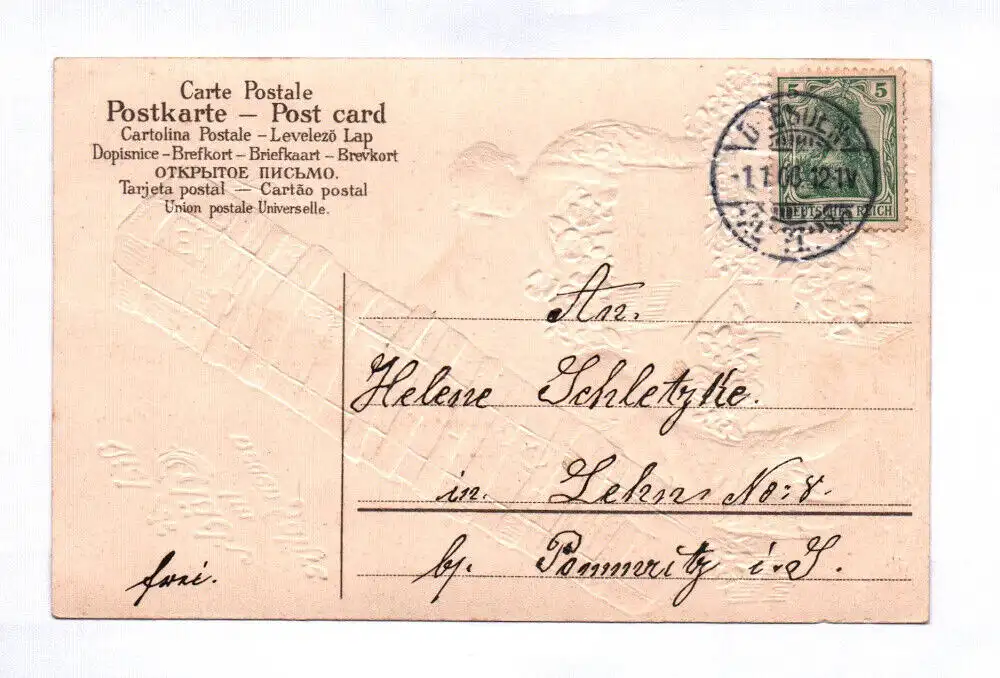 Carte Postale
Postkarte — Post card
Cartolina Postale – Levelező Lap
Dopisnice – Brefkort – Briefkaart – Brevkort
ОТКРЫТОЕ ПИСЬМО.
Tarjeta postal — Cartão postal
Union postale Universelle.
5 5
DEUTSCHES REICH
DRESDEN
ALTST.
1.
An.
Helene Schletzke.
in. Lehn No: 8.
bp. Pommritz i. S.
frei.